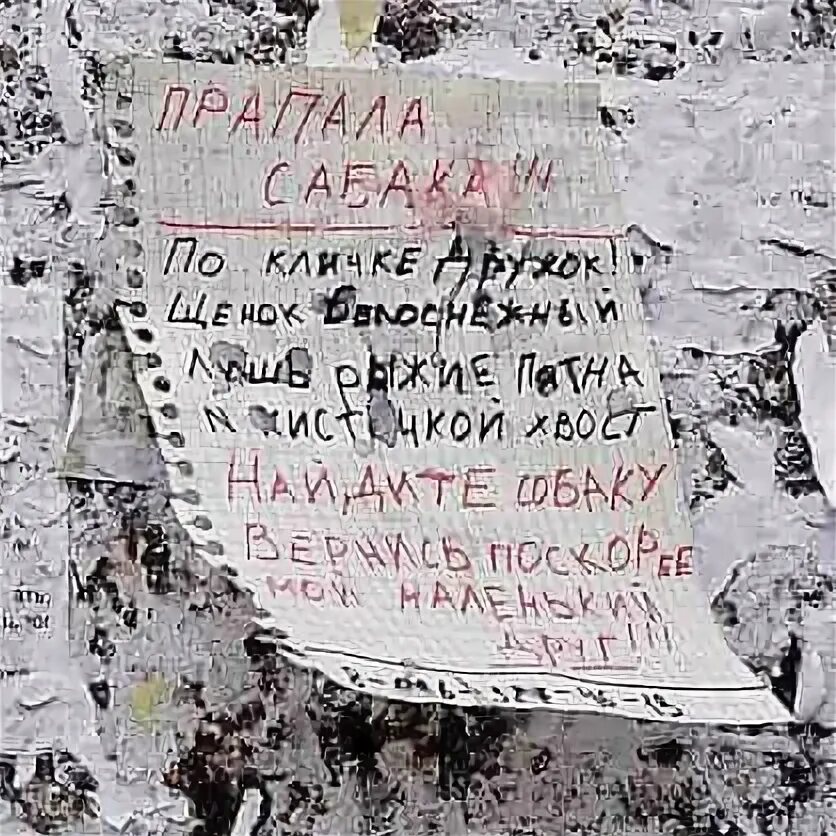 ПРАПАЛА
САБАКА!!!
ПО КЛИЧКЕ ДРУЖОК!
ЩЕНОК БЕЛОСНЕЖНЫЙ
ЛИШЬ РЫЖИЕ ПЯТНА
И КИСТОЧКОЙ ХВОСТ
НАЙДИТЕ СОБАКУ
ВЕРНИСЬ ПОСКОРЕЕ
МОЙ МАЛЕНЬКИЙ
ДРУГ!!!